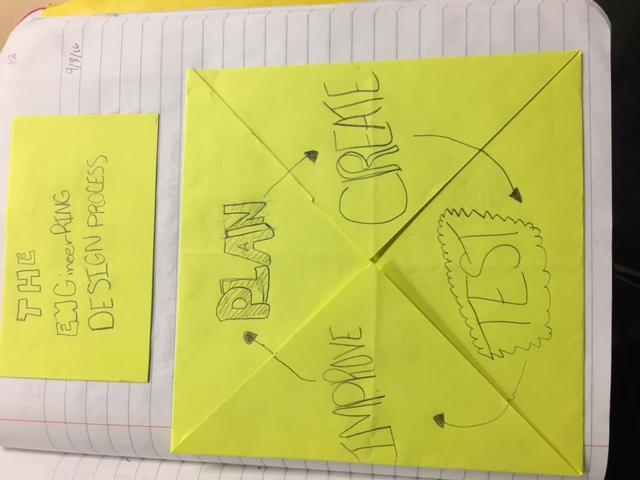 9/8/16
THE
ENGineeRING
DESIGN PROCESS
PLAN
CREATE
TEST
IMPROVE